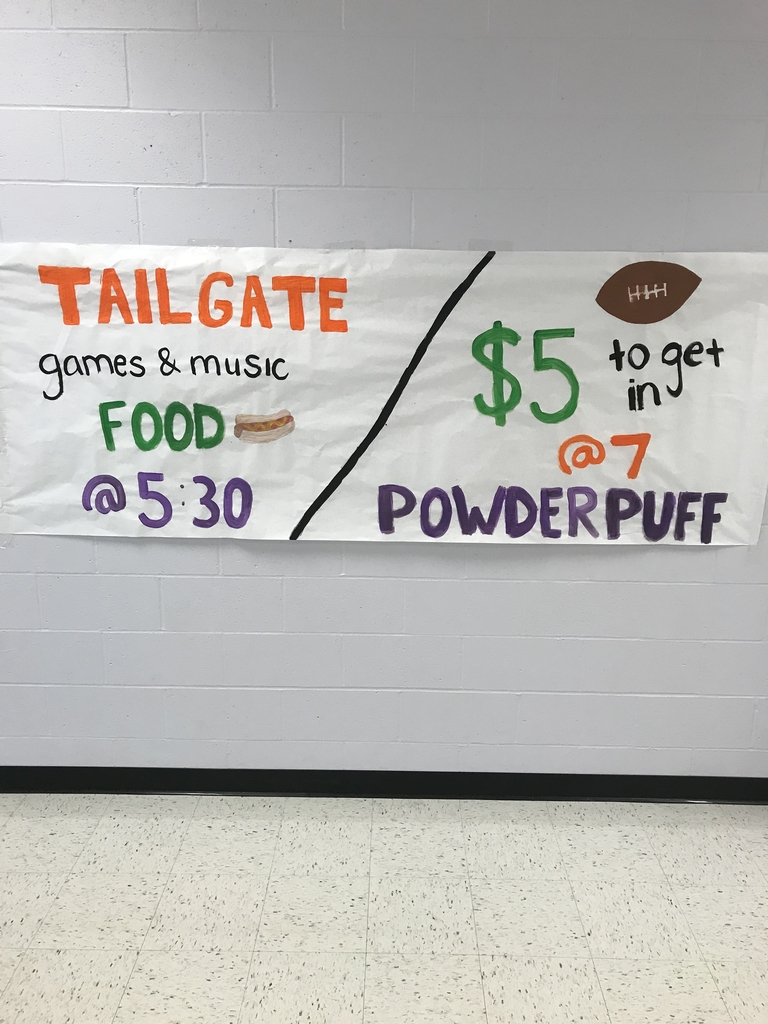 TAILGATE
games & music
FOOD
@ 5:30
$5 to get in
@ 7
POWDERPUFF